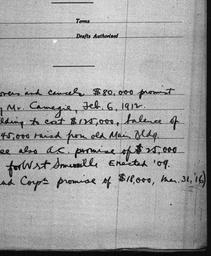 Terms
Drafts Authorized
overs and cancels $80,000 promise
y Mr. Carnegie, Feb. 6, 1912.
lding to cost $125,000, balance of
45,000 raised from old Main Bldg.
ee also A.C. promise of $25,000
for West Somerville Erected '09.
nd Corp'n promise of $18,000, Mar. 31, '16)